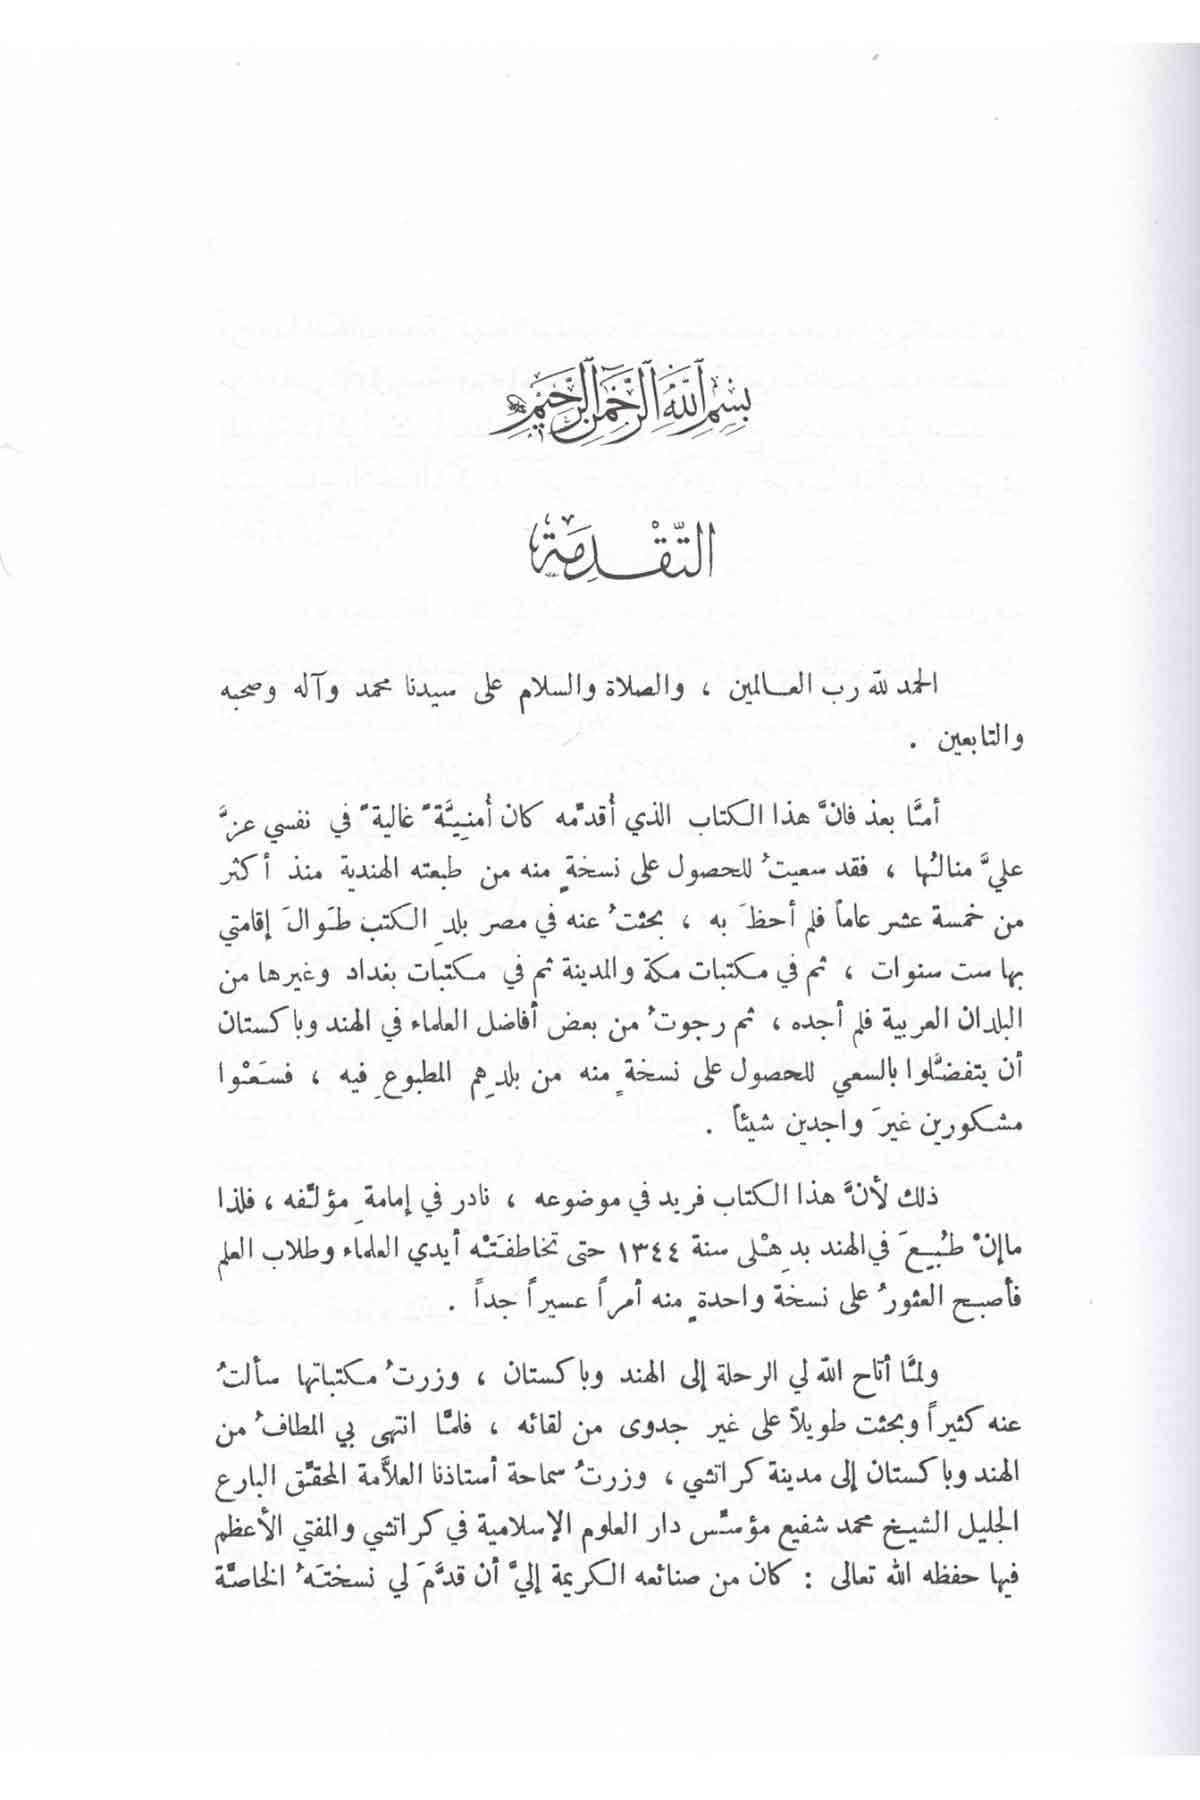 بسم الله الرحمن الرحيم
التَّقْدِمَة
الحمد لله رب العالمين ، والصلاة والسلام على سيدنا محمد وآله وصحبه
والتابعين .
أمَّا بعد فانَّ هذا الكتاب الذي أُقدِّمه كان أُمنيَّةً غاليةً في نفسي عزَّ
عليَّ منالُها ، فقد سعيتُ للحصول على نسخةٍ منه من طبعته الهندية منذ أكثر
من خمسة عشر عاماً فلم أحظَ به ، بحثتُ عنه في مصر بلدِ الكتب طَوالَ إقامتي
بها ست سنوات ، ثم في مكتبات مكة والمدينة ثم في مكتبات بغداد وغيرها من
البلدان العربية فلم أجده ، ثم رجوتُ من بعض أفاضل العلماء في الهند وباكستان
أن يتفضَّلوا بالسعي للحصول على نسخةٍ منه من بلدِهم المطبوعِ فيه ، فسَعَوْا
مشكورين غيرَ واجدين شيئاً .
ذلك لأنَّ هذا الكتاب فريد في موضوعه ، نادر في إمامةِ مؤلِّفه ، فلذا
ماإنْ طُبِعَ في الهند بدِهْلى سنة ١٣٤٤ حتى تخاطفَتْه أيدي العلماء وطلاب العلم
فأصبح العثورُ على نسخة واحدةٍ منه أمراً عسيراً جداً .
ولمَّا أتاح الله لي الرحلة إلى الهند وباكستان ، وزرتُ مكتباتها سألتُ
عنه كثيراً وبحثت طويلاً على غير جدوى من لقائه ، فلمَّا انتهى بي المطافُ من
الهند وباكستان إلى مدينة كراتشي ، وزرتُ سماحة أستاذنا العلاَّمة المحقِّق البارع
الجليل الشيخ محمد شفيع مؤسِّس دار العلوم الإسلامية في كراتشي والمفتي الأعظم
فيها حفظه الله تعالى : كان من صنائعه الكريمة إليَّ أن قدَّمَ لي نسختَهُ الخاصَّة